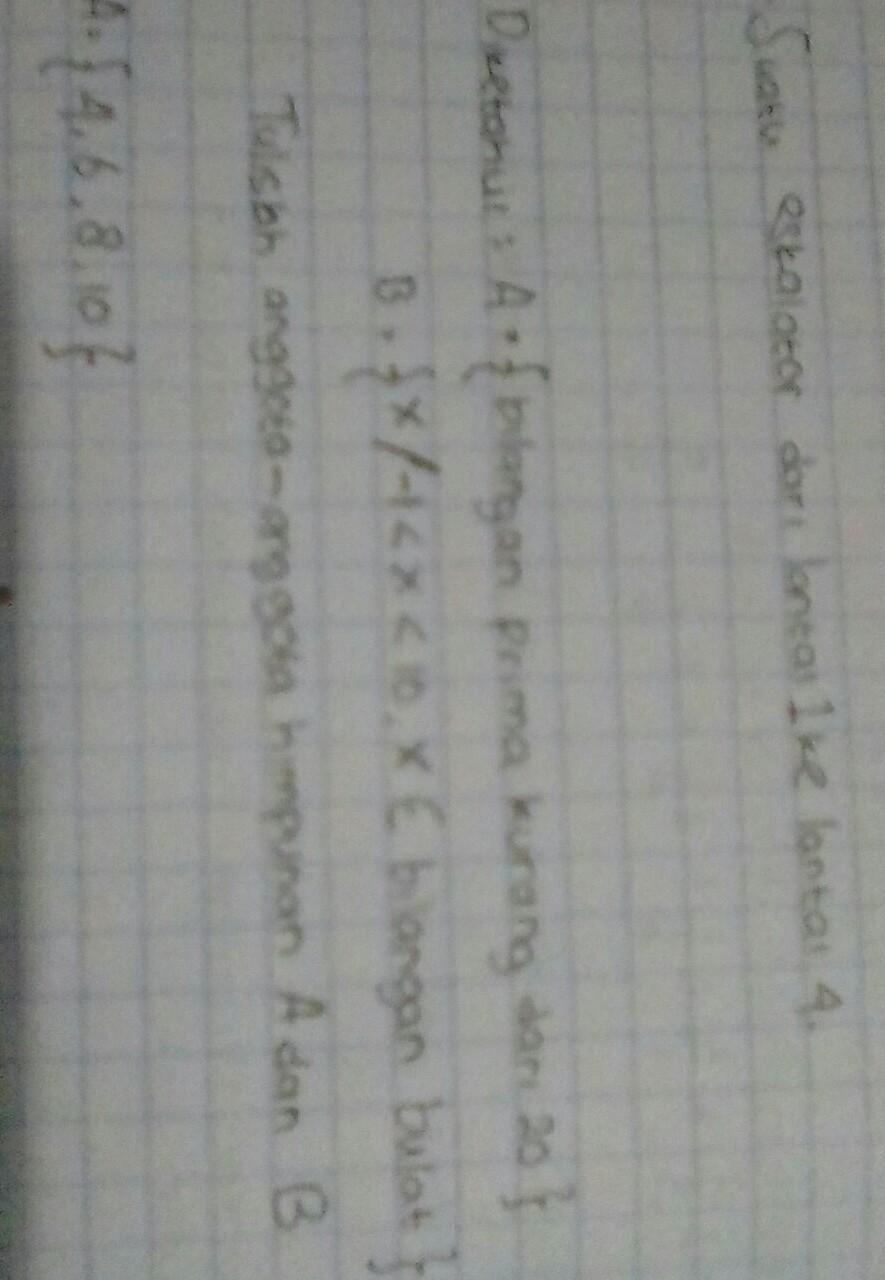 Suatu eskalator dari lantai 1 ke lantai 4.
Diketahui : A = {bilangan prima kurang dari 20}
B = {x/-1 < x < 10, x ∈ bilangan bulat}
Tulislah anggota-anggota himpunan A dan B
A = {4, 6, 8, 10}